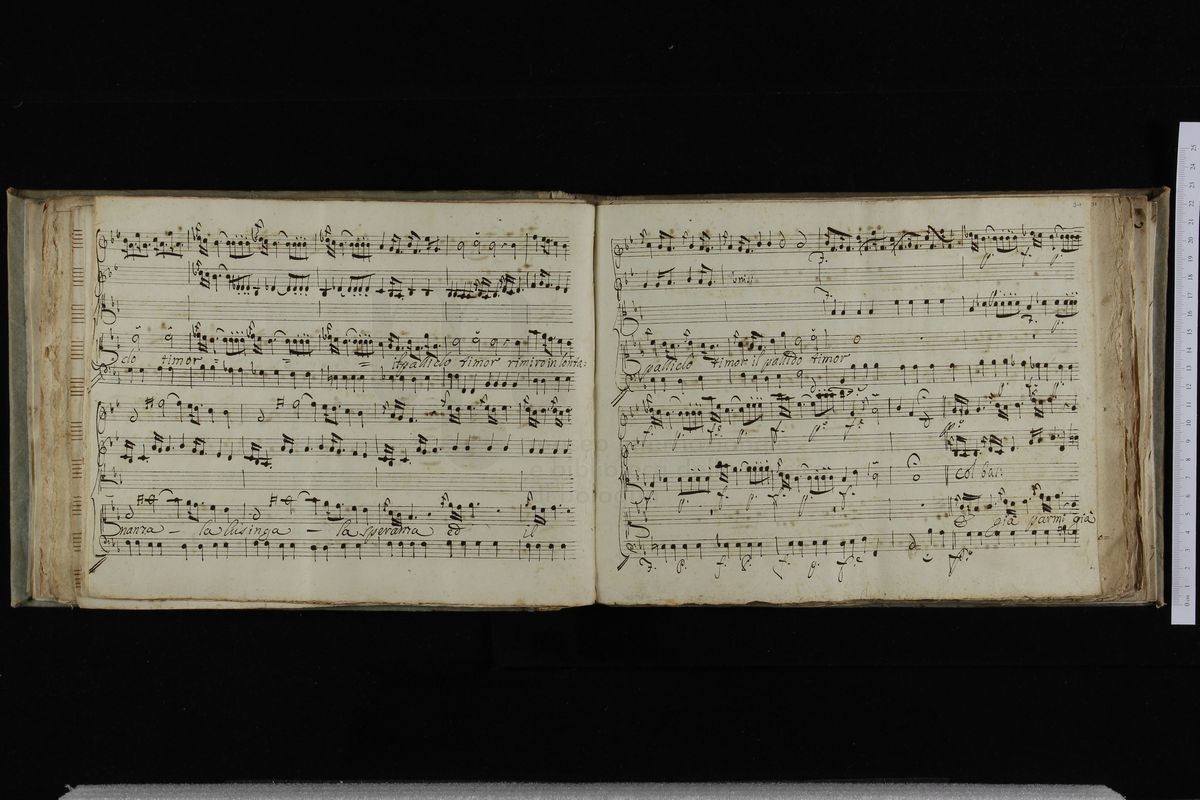 do timor = = il pallido timor rimiro in lonta:
nanza - la lusinga - la speranza ed il
unis:
f. p. f. p.
f. p.
pallido timor il pallido timor
f. p. f. p. f. p. f.
f. p. f. p. f. col bas:
già parmi già
f. p. f. p. f. p. f.